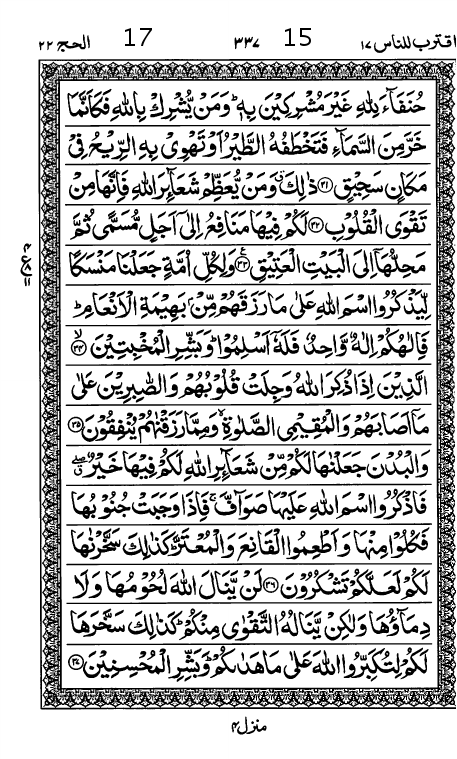 اقترب للناس ١٧ 15 ٣٣٧ 17 الحج ٢٢
حُنَفَآءَ لِلّٰهِ غَيْرَ مُشْرِكِيْنَ بِهٖ ؕ وَمَنْ يُّشْرِكْ بِاللّٰهِ فَكَاَنَّمَا
خَرَّ مِنَ السَّمَآءِ فَتَخْطَفُهُ الطَّيْرُ اَوْ تَهْوِىْ بِهِ الرِّيْحُ فِىْ
مَكَانٍ سَحِيْقٍ ﴿۳۱﴾ ذٰلِكَ ۗ وَمَنْ يُّعَظِّمْ شَعَآئِرَ اللّٰهِ فَاِنَّهَا مِنْ
تَقْوَى الْقُلُوْبِ ﴿۳۲﴾ لَكُمْ فِيْهَا مَنَافِعُ اِلٰٓى اَجَلٍ مُّسَمًّى ثُمَّ
مَحِلُّهَاۤ اِلَى الْبَيْتِ الْعَتِيْقِ ﴿۳۳﴾ وَلِكُلِّ اُمَّةٍ جَعَلْنَا مَنْسَكًا
لِّيَذْكُرُوا اسْمَ اللّٰهِ عَلٰى مَا رَزَقَهُمْ مِّنْۢ بَهِيْمَةِ الْاَنْعَامِ ؕ
فَاِلٰهُكُمْ اِلٰهٌ وَّاحِدٌ فَلَهٗۤ اَسْلِمُوْا ؕ وَبَشِّرِ الْمُخْبِتِيْنَ ۙ﴿۳۴﴾
الَّذِيْنَ اِذَا ذُكِرَ اللّٰهُ وَجِلَتْ قُلُوْبُهُمْ وَالصّٰبِرِيْنَ عَلٰى
مَاۤ اَصَابَهُمْ وَالْمُقِيْمِى الصَّلٰوةِ ۙ وَمِمَّا رَزَقْنٰهُمْ يُنْفِقُوْنَ ﴿۳۵﴾
وَالْبُدْنَ جَعَلْنٰهَا لَكُمْ مِّنْ شَعَآئِرِ اللّٰهِ لَكُمْ فِيْهَا خَيْرٌ ۖ
فَاذْكُرُوا اسْمَ اللّٰهِ عَلَيْهَا صَوَآفَّ ۚ فَاِذَا وَجَبَتْ جُنُوْبُهَا
فَكُلُوْا مِنْهَا وَاَطْعِمُوا الْقَانِعَ وَالْمُعْتَرَّ ؕ كَذٰلِكَ سَخَّرْنٰهَا
لَكُمْ لَعَلَّكُمْ تَشْكُرُوْنَ ﴿۳۶﴾ لَنْ يَّنَالَ اللّٰهَ لُحُوْمُهَا وَلَا
دِمَآؤُهَا وَلٰكِنْ يَّنَالُهُ التَّقْوٰى مِنْكُمْ ؕ كَذٰلِكَ سَخَّرَهَا
لَكُمْ لِتُكَبِّرُوا اللّٰهَ عَلٰى مَا هَدٰٮكُمْ ؕ وَبَشِّرِ الْمُحْسِنِيْنَ ﴿۳۷﴾
منزل ۴